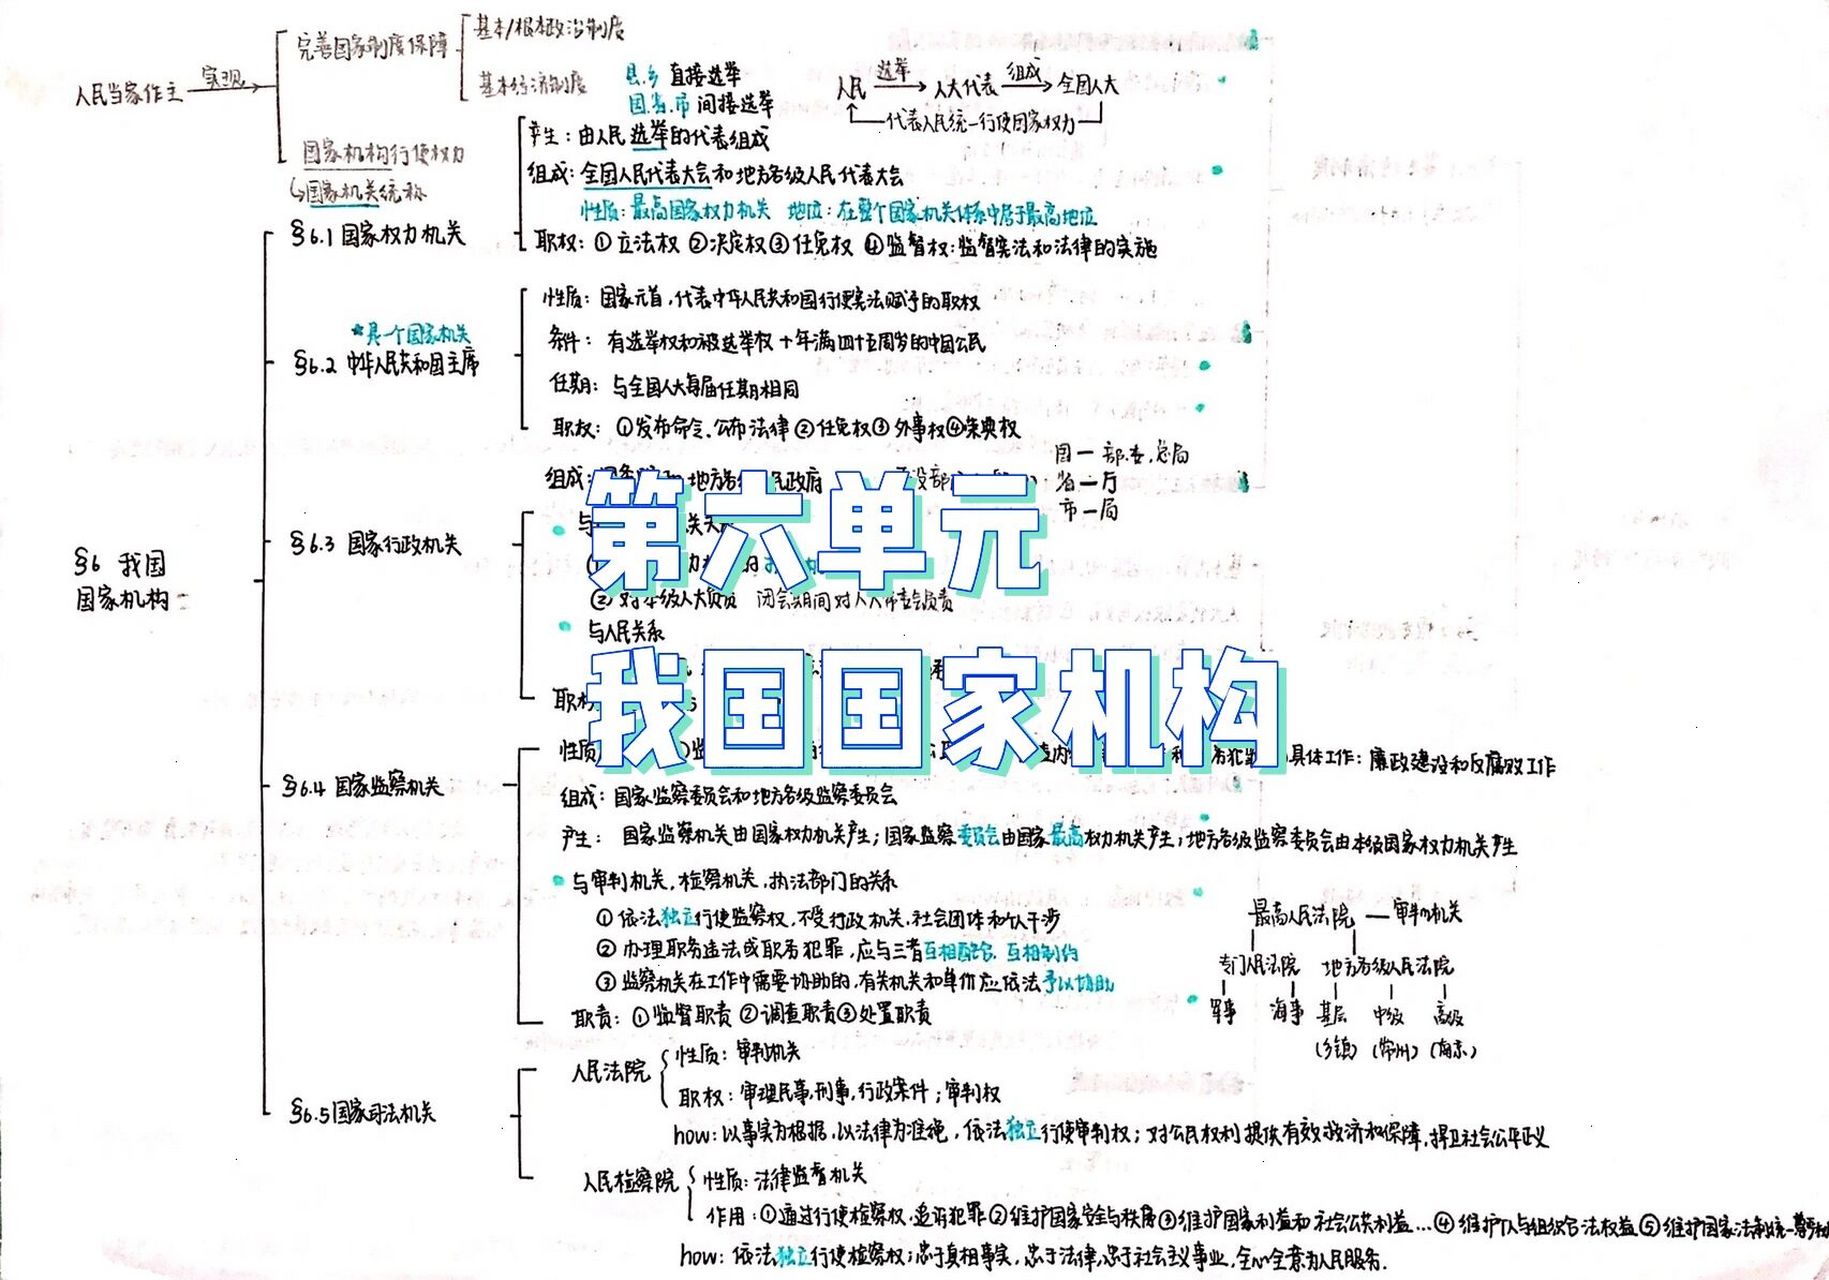 人民当家作主 实现
完善国家制度保障
基本/根本政治制度
基本经济制度
国家机构行使权力
国家机关统称
县.乡 直接选举
国.省.市 间接选举
人民 选举 人大代表 组成 全国人大
代表人民统一行使国家权力
§6 我国
国家机构
§6.1 国家权力机关
产生：由人民选举的代表组成
组成：全国人民代表大会和地方各级人民代表大会
性质：最高国家权力机关 地位：在整个国家机关体系中居于最高地位
职权：①立法权 ②决定权 ③任免权 ④监督权：监督宪法和法律的实施
*是一个国家机关
§6.2 中华人民共和国主席
性质：国家元首，代表中华人民共和国行使宪法赋予的职权
条件：有选举权和被选举权+年满四十五周岁的中国公民
任期：与全国人大每届任期相同
职权：①发布命令.公布法律 ②任免权 ③外事权 ④荣典权
§6.3 国家行政机关
组成： 地方各级 民政府
国一部.委.总局
省一厅
市一局
第六单元
与
②对本级人大负责 闭会期间对人大常委会负责
与人民关系
我国国家机构
职权
§6.4 国家监察机关
性质 具体工作：廉政建设和反腐败工作
组成：国家监察委员会和地方各级监察委员会
产生：国家监察机关由国家权力机关产生；国家监察委员会由国家最高权力机关产生；地方各级监察委员会由本级国家权力机关产生
与审判机关，检察机关，执法部门的关系
①依法独立行使监察权，不受行政机关.社会团体和个人干涉
②办理职务违法或职务犯罪，应与三者互相配合，互相制约
③监察机关在工作中需要协助的，有关机关和单位应依法予以协助
职责：①监督职责 ②调查职责 ③处置职责
最高人民法院 — 审判机关
专门人民法院 地方各级人民法院
军事 海事 基层 中级 高级
(乡镇) (常州) (南京)
§6.5 国家司法机关
人民法院
性质：审判机关
职权：审理民事，刑事，行政案件；审判权
how：以事实为根据，以法律为准绳，依法独立行使审判权；对公民权利提供有效救济和保障，捍卫社会公平正义
人民检察院
性质：法律监督机关
作用：①通过行使检察权，追诉犯罪 ②维护国家安全与秩序 ③维护国家利益和社会公共利益…④维护个人与组织合法权益 ⑤维护国家法制统一尊严
how：依法独立行使检察权；忠于真相事实，忠于法律，忠于社会主义事业，全心全意为人民服务.